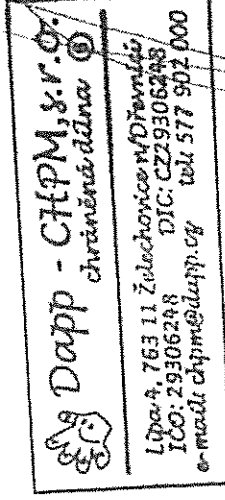 Dapp - CHPM, s.r.o.
chráněná dílna 6
Lípa 4, 763 11 Želechovice n/Dřevnicí
IČO: 29306248 DIC: CZ29306248
e-mail: chpm@dapp.cz tel: 577 902 000